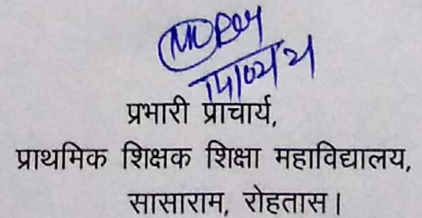 प्रभारी प्राचार्य,
प्राथमिक शिक्षक शिक्षा महाविद्यालय,
सासाराम, रोहतास।